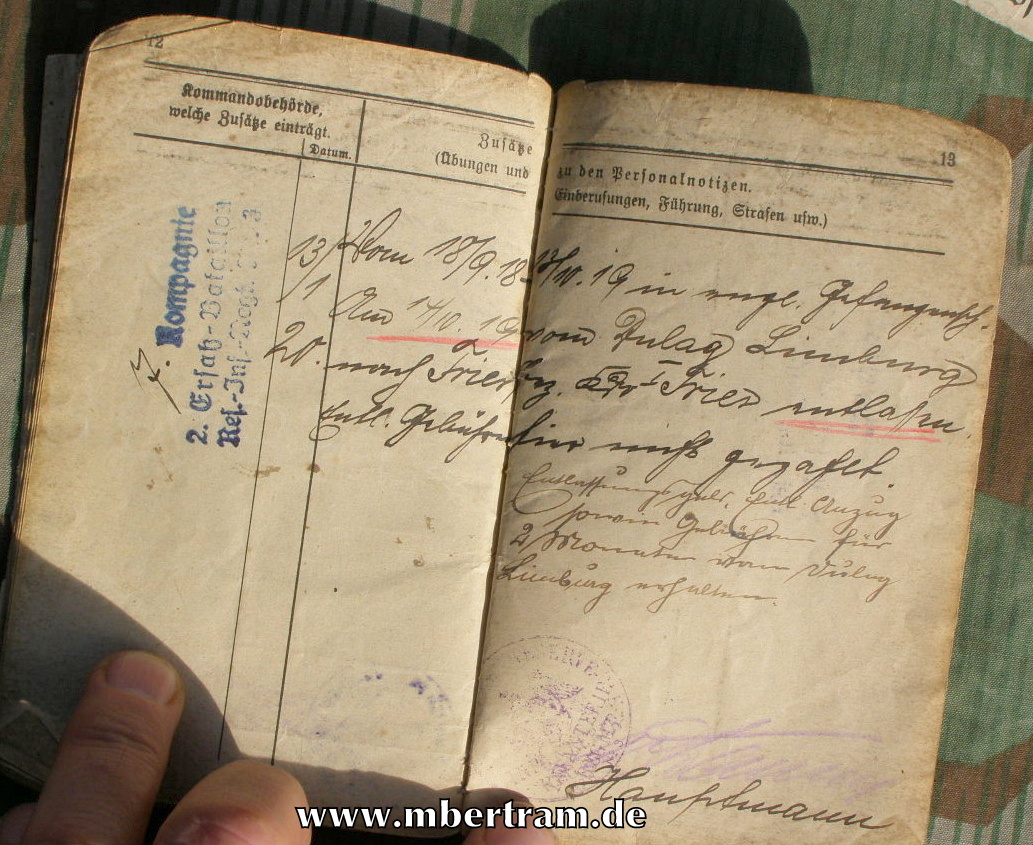 12
Kommandobehörde,
welche Zusätze einträgt.
Datum.
Zusätze
(Übungen und
13
zu den Personalnotizen.
Einberufungen, Führung, Strafen usw.)
7. Kompagnie
2. Ersatz-Bataillon
Res.-Inf.-Regt.
13/
/1
20.
Vom 18/9.18 - 13/10.19 in engl. Gefangensch.
Am 14/10.19 vom Dulag Limburg
nach Trier Trier entlassen.
Entl. Gebührnisse hier nicht gezahlt.
Entlassungsgeld, Entl. Anzug
sowie Gebührn für
2 Monate vom Dulag
Limburg erhalten.
Hauptmann
www.mbertram.de